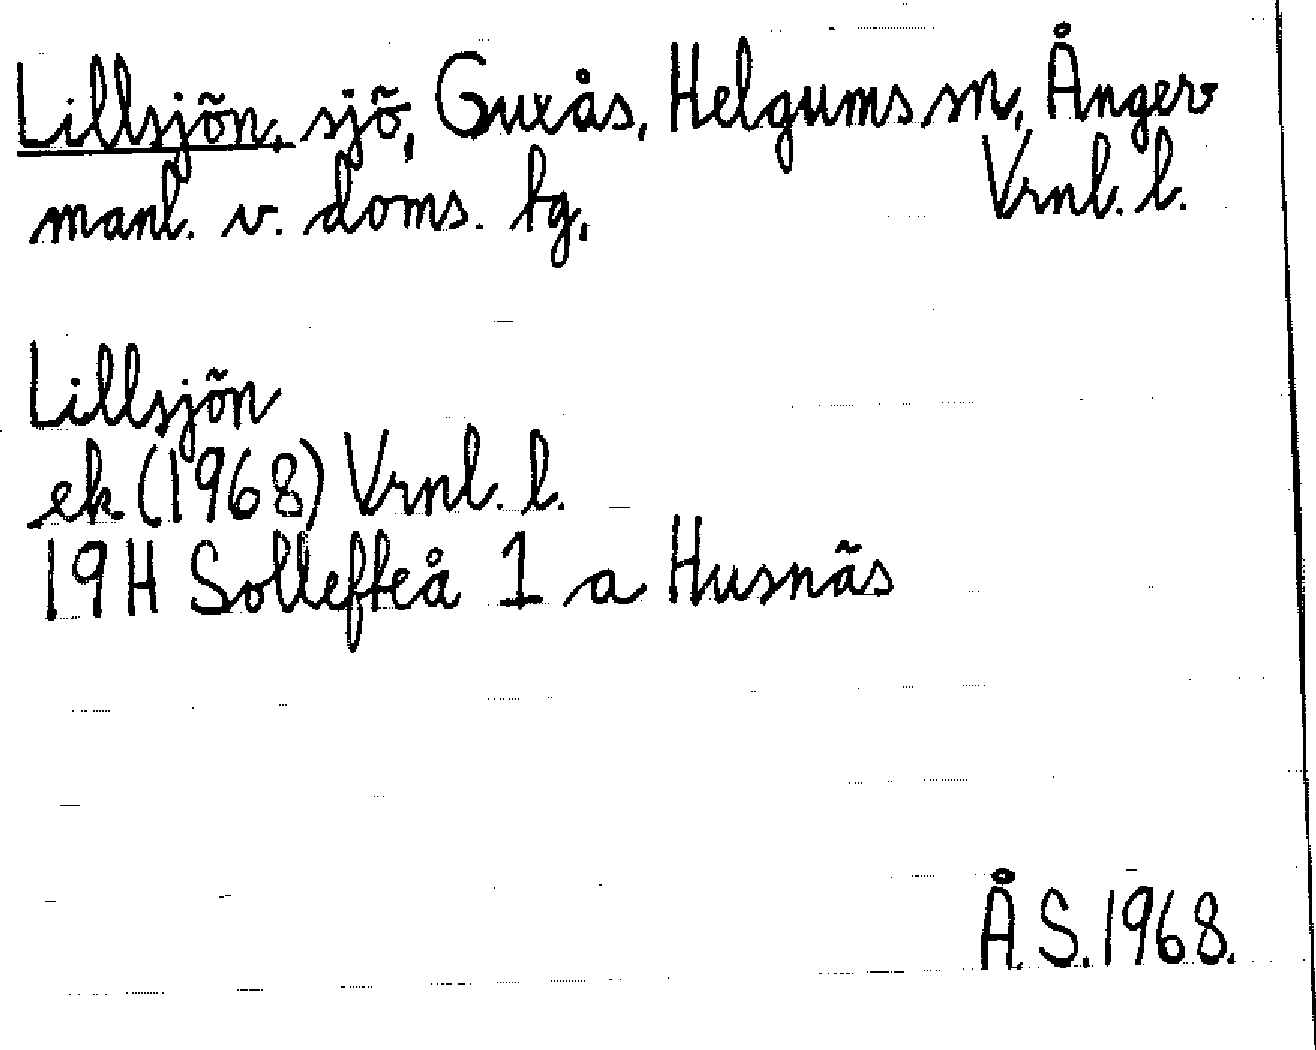 Lillsjön, sjö, Guxås, Helgums sn, Ånger
manl. v. doms. lg,
Vrnl. l.
Lillsjön
ek (1968) Vrnl. l.
19H Sollefteå 1 a Husnäs
Å.S. 1968.